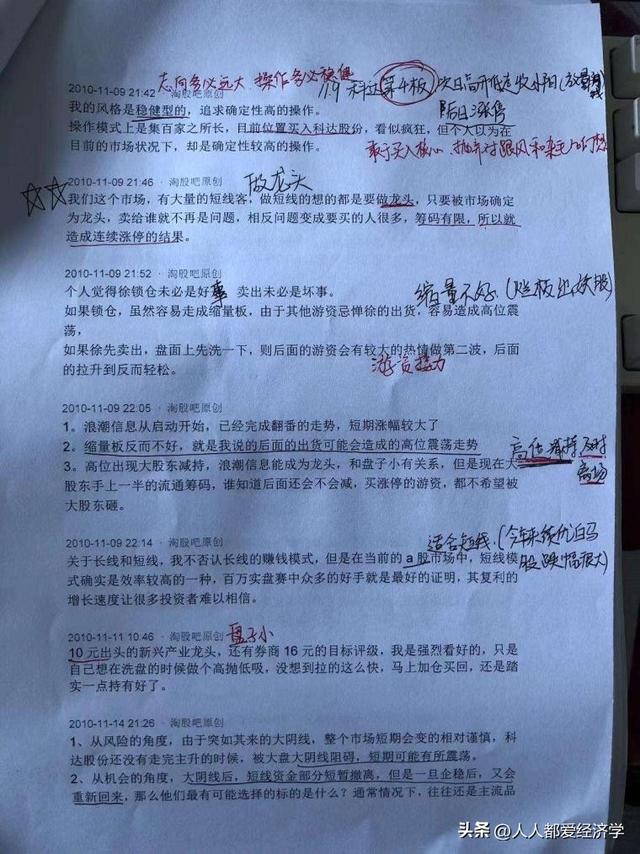 志向务必远大 操作务必稳健
2010-11-09 21:42
11.9 科达第4板
我的风格是稳健型的，追求确定性高的操作。
隔日涨停
操作模式上是集百家之所长，目前位置买入科达股份，看似疯狂，但个人以为在
目前的市场状况下，却是确定性较高的操作。
敢于买入核心
2010-11-09 21:46 · 淘股吧原创
做龙头
我们这个市场，有大量的短线客，做短线的想的都是要做龙头，只要被市场确定
为龙头，卖给谁就不再是问题，相反问题变成要买的人很多，筹码有限，所以就
造成连续涨停的结果。
2010-11-09 21:52 · 淘股吧原创
个人觉得徐锁仓未必是好事 卖出未必是坏事。
缩量不好
如果锁仓，虽然容易走成缩量板，由于其他游资忌惮徐的出货，容易造成高位震
荡，
如果徐先卖出，盘面上先洗一下，则后面的游资会有较大的热情做第二波，后面
的拉升到反而轻松。
游资接力
2010-11-09 22:05 · 淘股吧原创
1。浪潮信息从启动开始，已经完成翻番的走势，短期涨幅较大了
2。缩量板反而不好，就是我说的后面的出货可能会造成的高位震荡走势
高位减持及时
离场
3。高位出现大股东减持，浪潮信息能成为龙头，和盘子小有关系，但是现在大
股东手上一半的流通筹码，谁知道后面还会不会减，买涨停的游资，都不希望被
大股东砸。
2010-11-09 22:14 · 淘股吧原创
适合短线(今年来绩优白马
股跌幅很大)
关于长线和短线，我不否认长线的赚钱模式，但是在当前的a股市场中，短线模
式确实是效率较高的一种，百万实盘赛中众多的好手就是最好的证明，其复利的
增长速度让很多投资者难以相信。
2010-11-11 10:46 · 淘股吧原创
盘子小
10元出头的新兴产业龙头，还有券商16元的目标评级，我是强烈看好的，只是
自己想在洗盘的时候做个高抛低吸，没想到拉的这么快，马上加仓买回，还是踏
实一点持有好了。
2010-11-14 21:26 · 淘股吧原创
1、从风险的角度，由于突如其来的大阴线，整个市场短期会变的相对谨慎，科
达股份还没有走完主升的时候，被大盘大阴线阻碍，短期可能有所震荡。
2、从机会的角度，大阴线后，短线资金部分短暂撤离，但是一旦企稳后，又会
重新回来，那么他们最有可能选择的标的是什么？通常情况下，往往还是主流品
头条 @人人都爱经济学